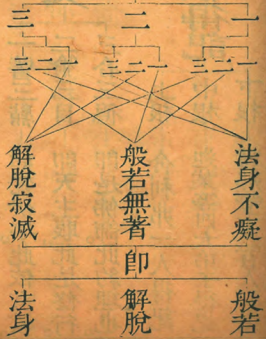 一 二 三
一二三 一二三 一二三
法身不癡
般若無著
解脫寂滅
卽
般若
解脫
法身